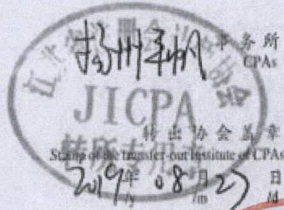 扬州 帆 事务所
CPAs
江苏省注册会计师协会
JICPA
转所专用章
转出协会盖章
Stamp of the transfer-out Institute of CPAs
2019年 08月 日
/y /m /d